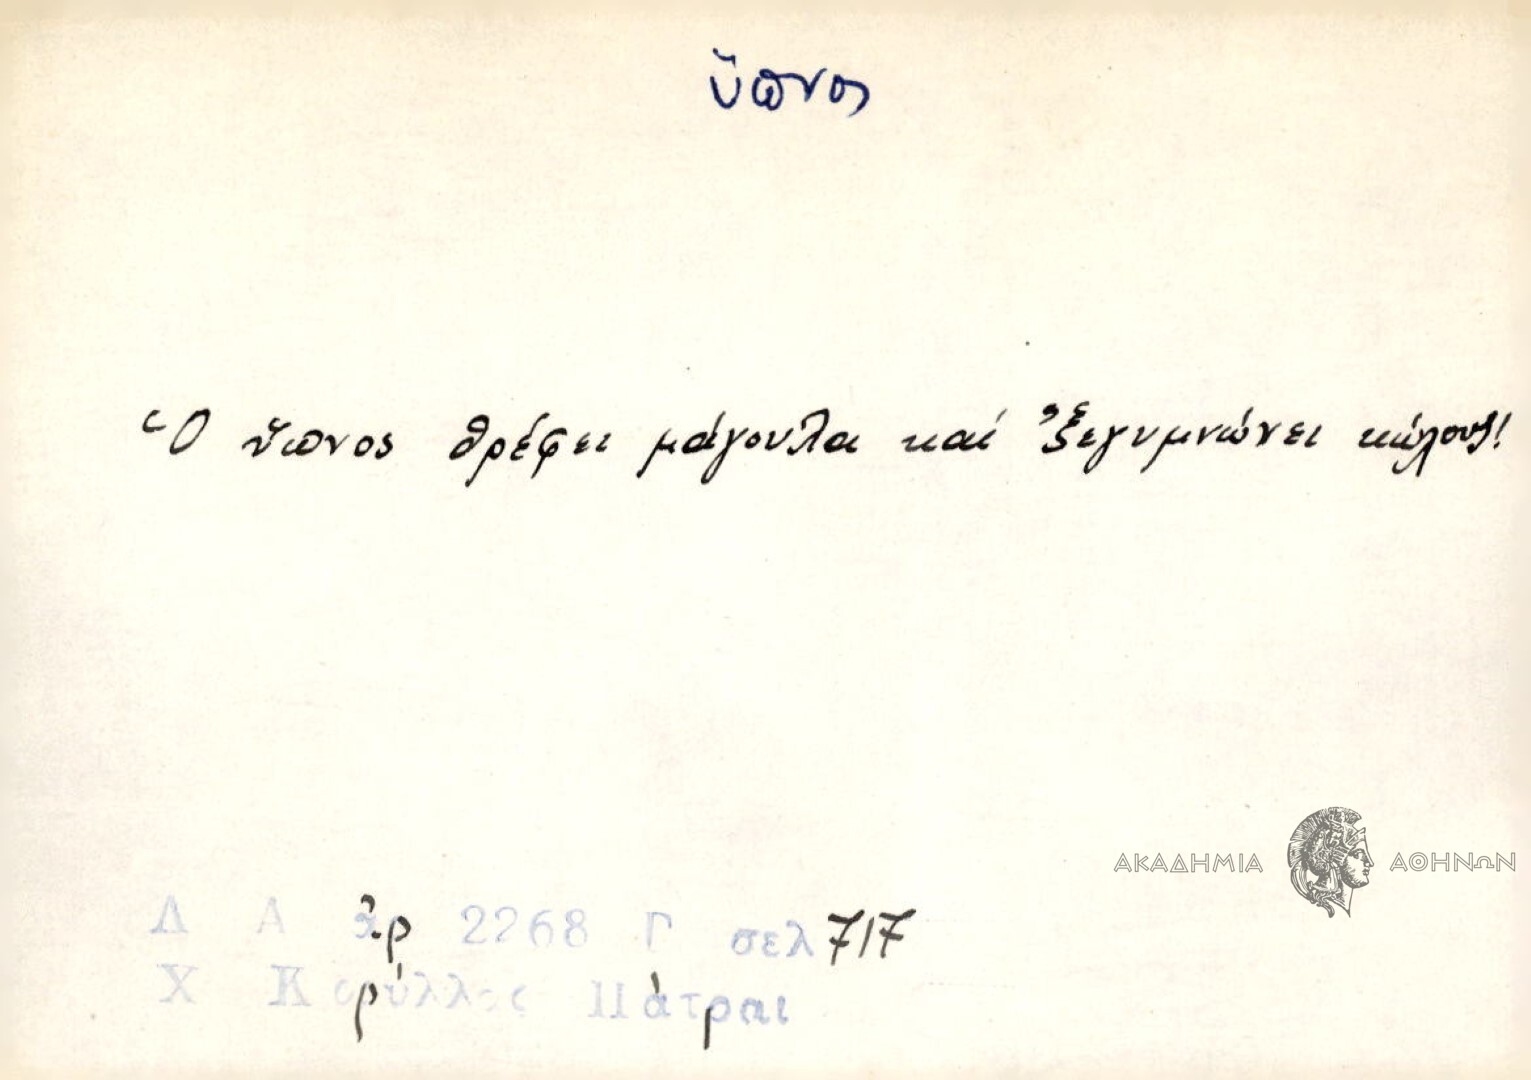 ὕπνος
Ὁ ὕπνος θρέφει μάγουλα καί ξεγυμνώνει κώλους!
ΑΚΑΔΗΜΙΑ ΑΘΗΝΩΝ
Λ Α ἀρ 2268 Γ σελ 717
Χ Κορύλλος Πάτραι